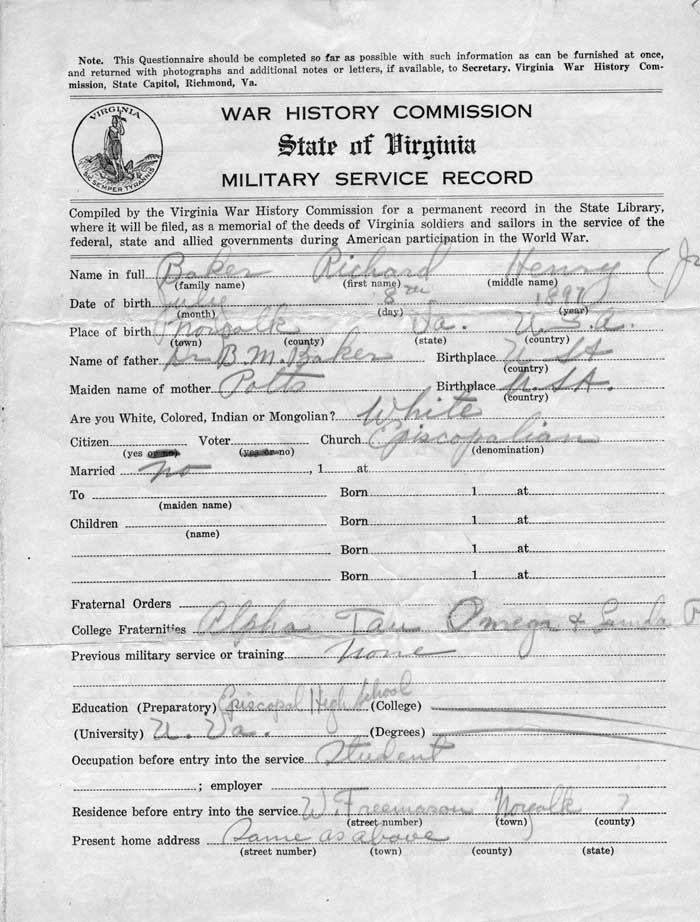 Note. This Questionnaire should be completed so far as possible with such information as can be furnished at once,
and returned with photographs and additional notes or letters, if available, to Secretary, Virginia War History Com-
mission, State Capitol, Richmond, Va.
VIRGINIA
SIC SEMPER TYRANNIS
WAR HISTORY COMMISSION
State of Virginia
MILITARY SERVICE RECORD
Compiled by the Virginia War History Commission for a permanent record in the State Library,
where it will be filed, as a memorial of the deeds of Virginia soldiers and sailors in the service of the
federal, state and allied governments during American participation in the World War.
Name in full Baker Richard Henry (Jr
(family name) (first name) (middle name)
Date of birth July 8th 1897
(month) (day) (year)
Place of birth Norfolk Va. U.S.A.
(town) (county) (state) (country)
Name of father Dr B.M. Baker Birthplace U SA
(country)
Maiden name of mother Potts Birthplace U.SA.
(country)
Are you White, Colored, Indian or Mongolian? White
Citizen Voter Church Episcopalian
(yes or no) (yes or no) (denomination)
Married no , 1 at
To Born 1 at
(maiden name)
Children Born 1 at
(name)
Born 1 at
Born 1 at
Fraternal Orders
College Fraternities Alpha Tau Omega &
Previous military service or training None
Education (Preparatory) Episcopal High School (College)
(University) U. Va. (Degrees)
Occupation before entry into the service Student
; employer
Residence before entry into the service W. Freemason Norfolk
(street number) (town) (county)
Present home address Same as above
(street number) (town) (county) (state)